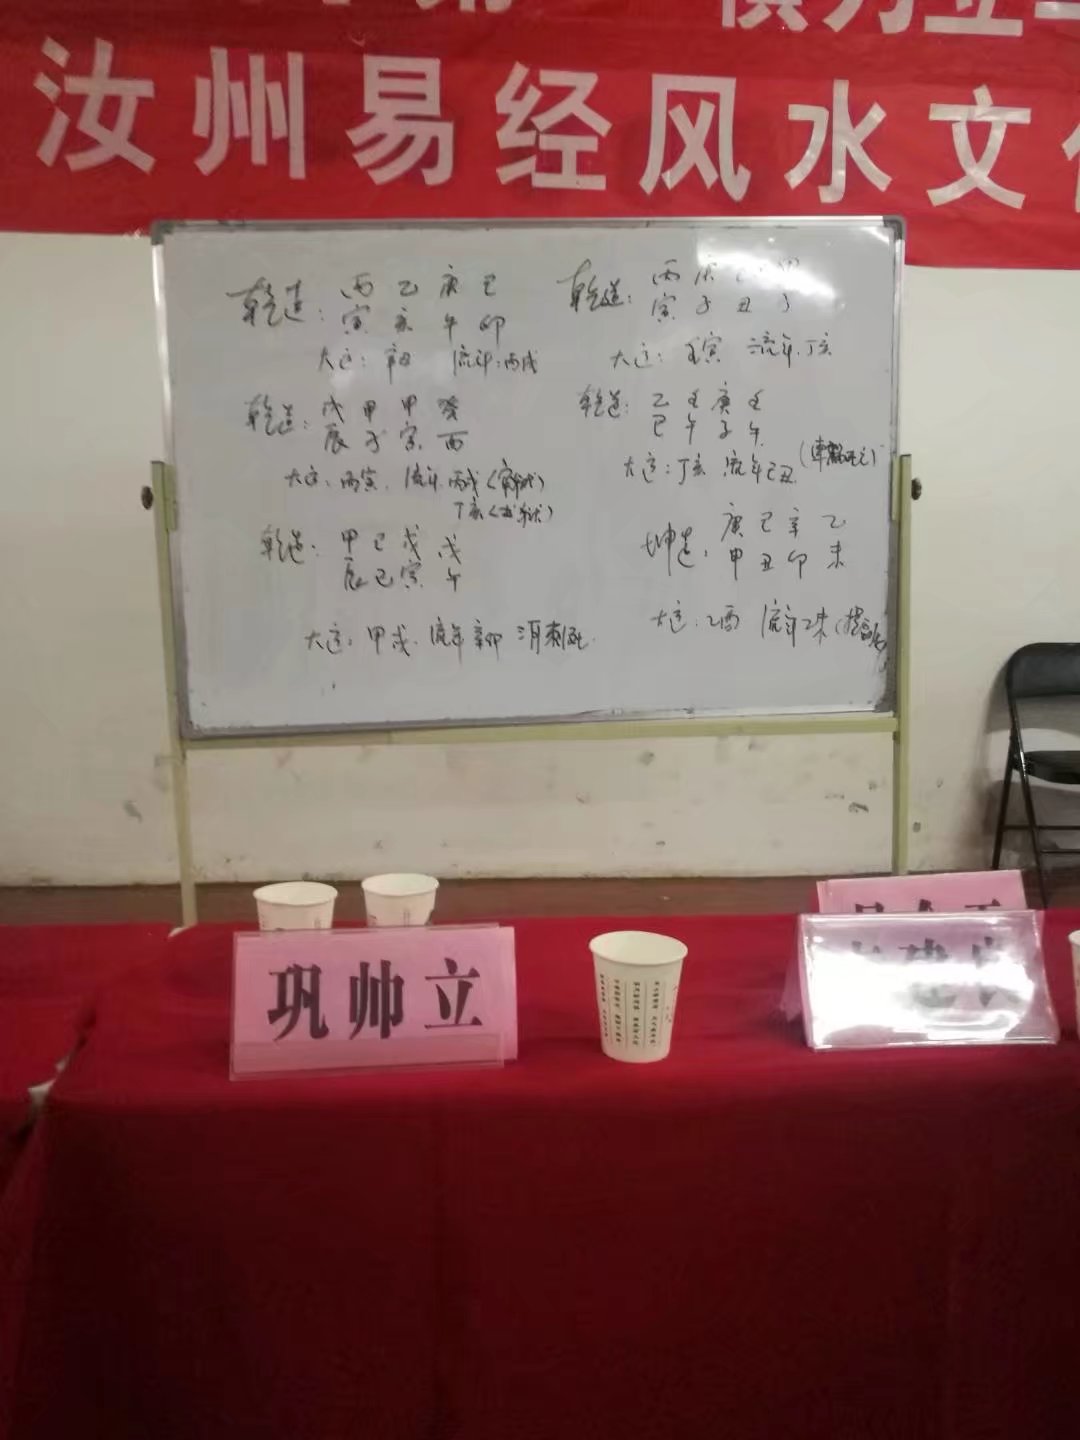 汝州易经风水文
乾造: 丙 乙 庚 己
寅 亥 午 卯
大运: 辛丑 流年: 丙戌
乾造: 戊 甲 甲 癸
辰 子 寅 酉
大运: 丙寅. 流年 丙戌
丁亥
乾造: 甲 己 戊 戊
辰 巳 寅 午
大运: 甲戌. 流年 辛卯
乾造: 丙 庚
寅 子 丑 子
大运: 壬寅 流年. 丁亥
乾造: 乙 壬 庚 壬
巳 午 子 午
大运: 丁亥 流年己丑
坤造: 庚 己 辛 乙
申 丑 卯 未
大运: 乙酉 流年乙未
巩帅立